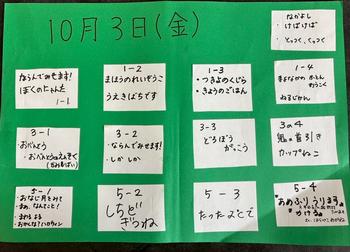 10月3日(金)
なかよし
・けばけば
・とっつく、ひっつく
ならんでみせます!
ぼくのにゃんた
1-1
1-2
まほうのれいぞうこ
うえきばちです
1-3
・きょうりゅうのくじら
・きょうのごはん
1-4
まよなかの
ねるじかん
3-1
・おべんとう
・おべんとうのえんそく
3-2
・ならんでみせます!
・しかしか
3-3
どろぼう
がっこう
3の4
鬼の首引き
カップねこ
5-1
・おなじ月をみて
・まめ、なんてこと!
・まわるよる
5-2
しちど
ぎつね
5-3
たった ひとで
5-4
あめふりうります